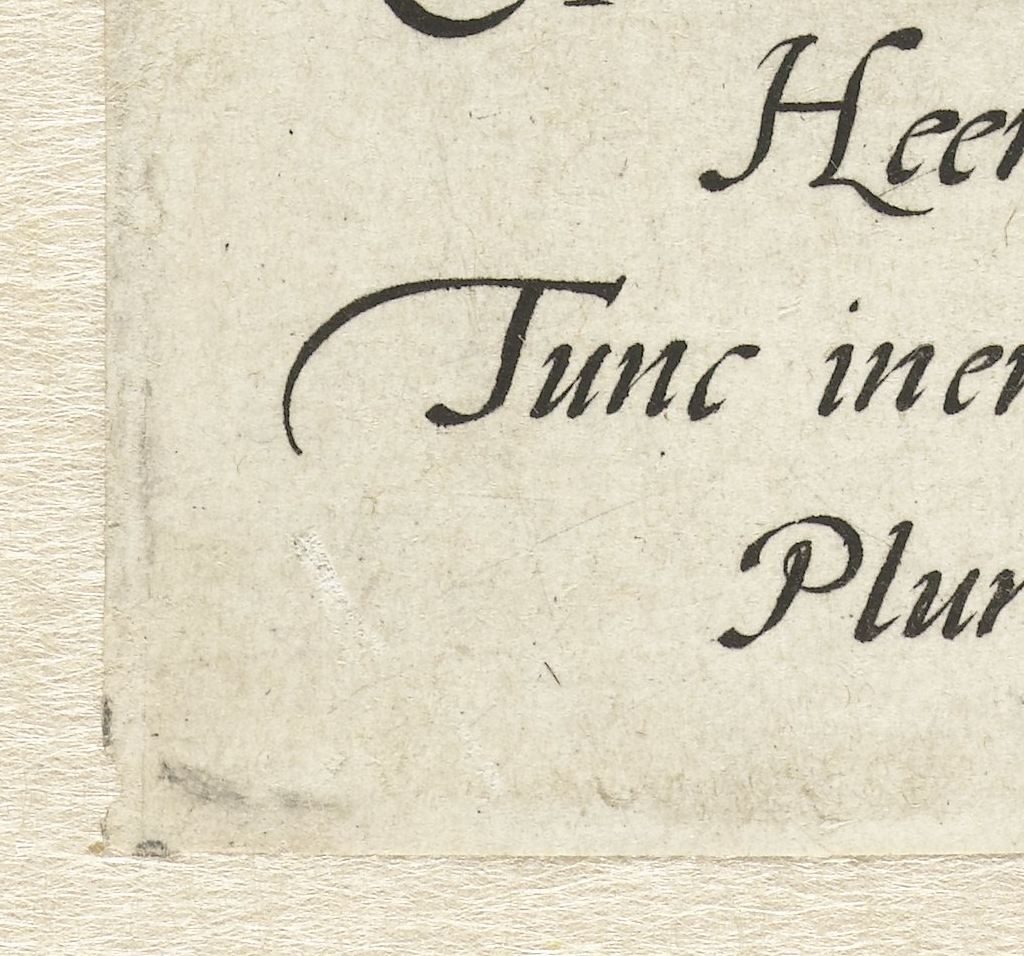 Heer
Tunc iner
Plur